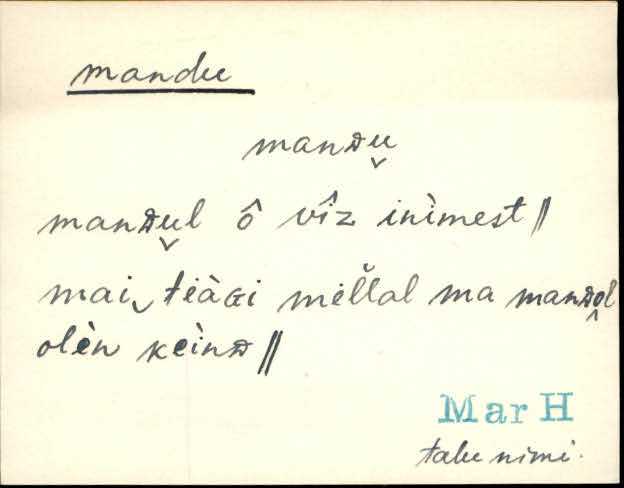 mandu
manᴅu̬
manᴅu̬l ô vîz inìmest ||
mai‿ t̆eàɢi mèl̆l̆al ma manᴅo̭l
olèn kèìnᴅ ||
Mar H
talu nimi.